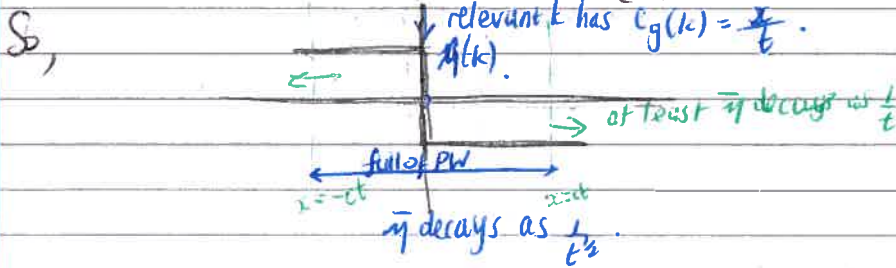 So,
relevant k has Cg(k) = x/t .
η(k).
at least η̄ decays as 1/t
full of PW
x=-ct
x=ct
η̄ decays as 1/t^½ .